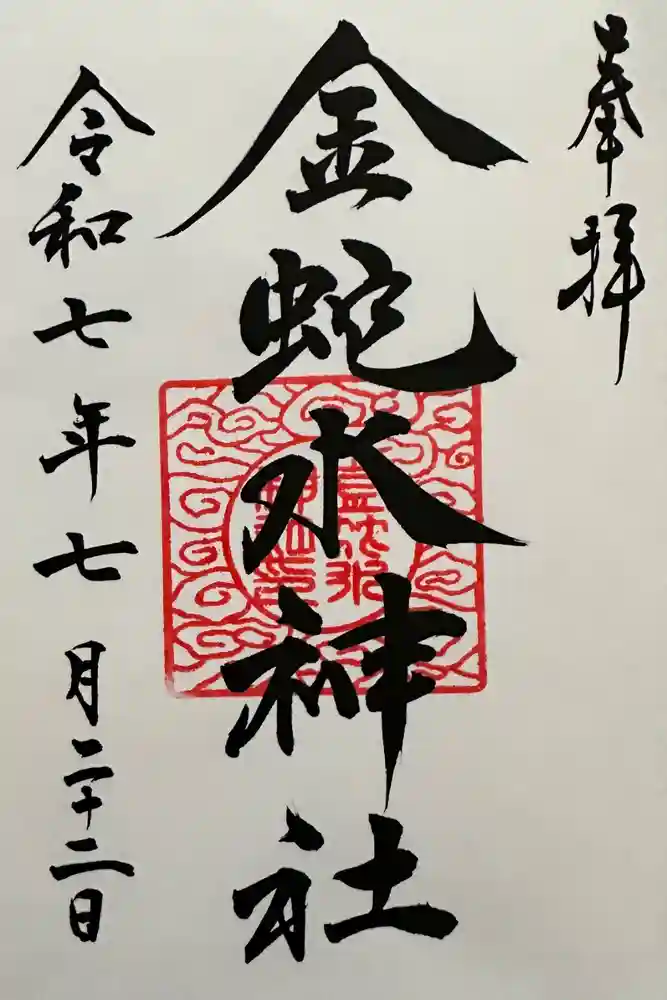 奉拝
金蛇水神社
令和七年七月二十二日